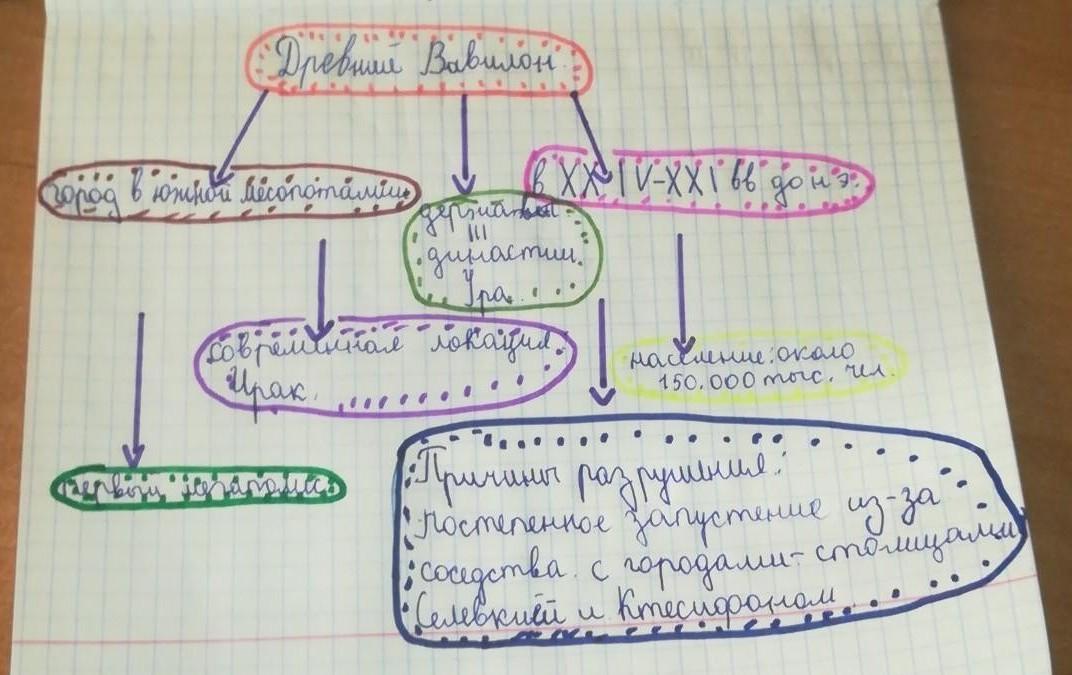 Древний Вавилон
город в южной Месопотамии
державы
III
династии
Ура
в XXIV-XXI вв до нэ.
современная локация
Ирак.
население: около
150.000 тыс. чел.
первый мегаполис
Причины разрушения:
постепенное запустение из-за
соседства с городами-столицами
Селевкией и Ктесифоном